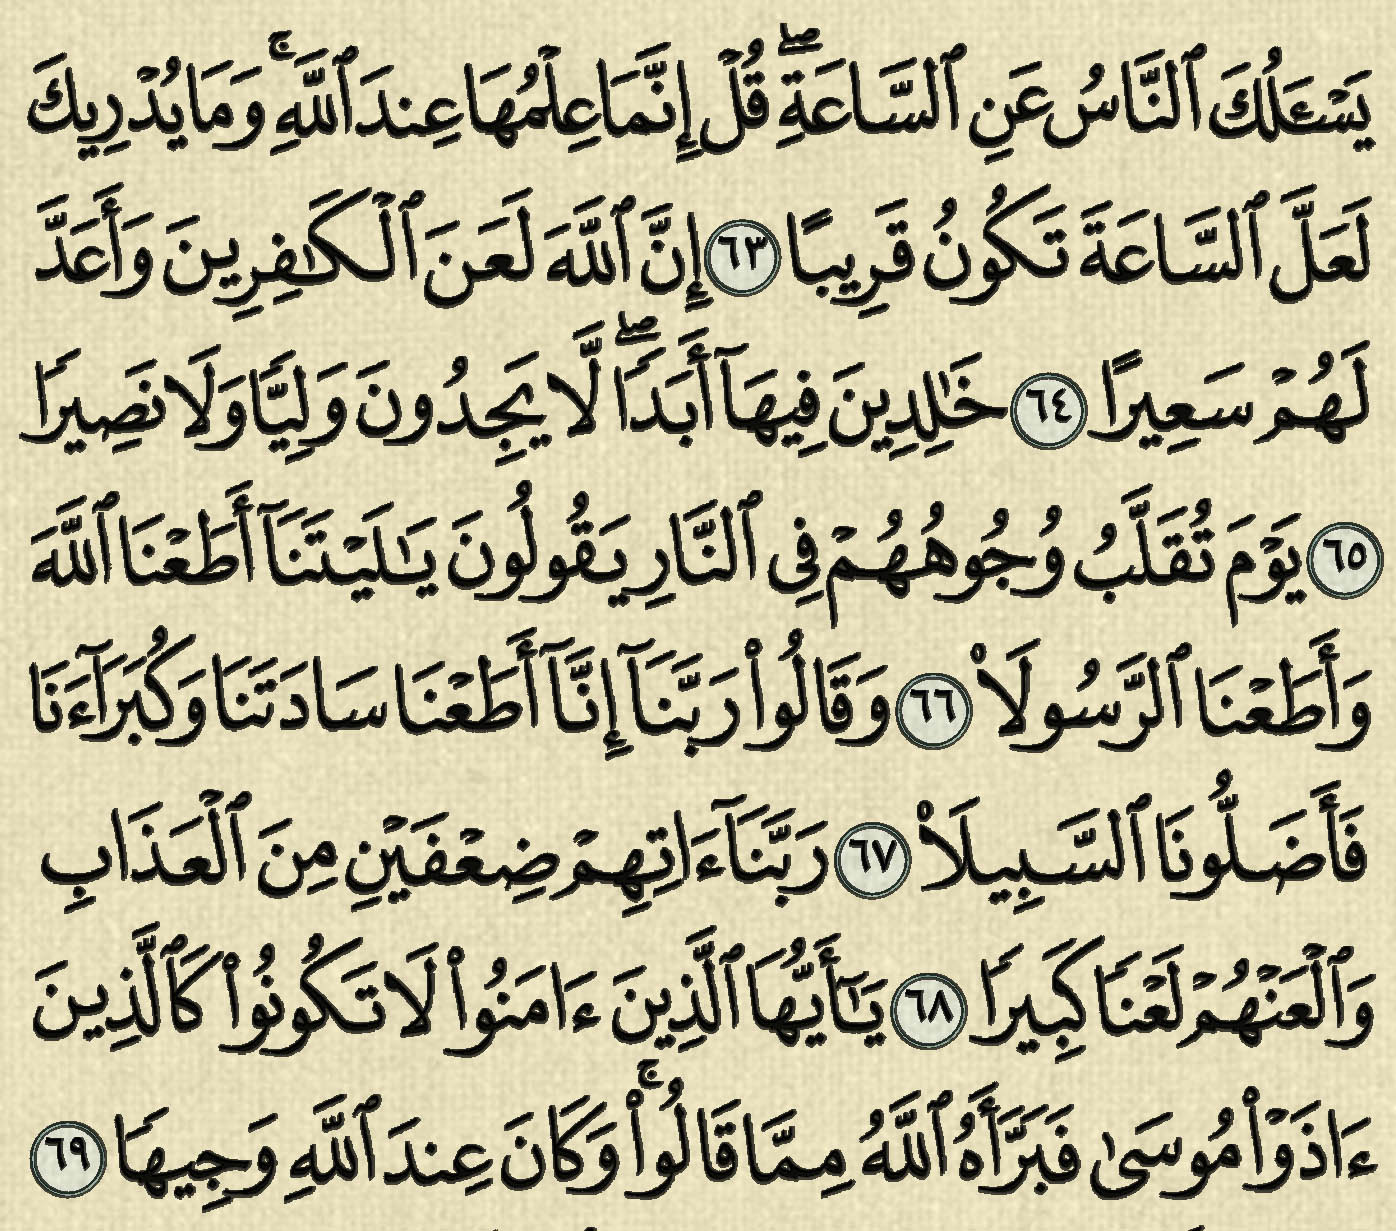 يَسْـَٔلُكَ ٱلنَّاسُ عَنِ ٱلسَّاعَةِۖ قُلْ إِنَّمَا عِلْمُهَا عِندَ ٱللَّهِۚ وَمَا يُدْرِيكَ
لَعَلَّ ٱلسَّاعَةَ تَكُونُ قَرِيبًا ٦٣ إِنَّ ٱللَّهَ لَعَنَ ٱلْكَـٰفِرِينَ وَأَعَدَّ
لَهُمْ سَعِيرًا ٦٤ خَـٰلِدِينَ فِيهَآ أَبَدًاۖ لَّا يَجِدُونَ وَلِيًّا وَلَا نَصِيرًا
٦٥ يَوْمَ تُقَلَّبُ وُجُوهُهُمْ فِى ٱلنَّارِ يَقُولُونَ يَـٰلَيْتَنَآ أَطَعْنَا ٱللَّهَ
وَأَطَعْنَا ٱلرَّسُولَا۠ ٦٦ وَقَالُوا۟ رَبَّنَآ إِنَّآ أَطَعْنَا سَادَتَنَا وَكُبَرَآءَنَا
فَأَضَلُّونَا ٱلسَّبِيلَا۠ ٦٧ رَبَّنَآ ءَاتِهِمْ ضِعْفَيْنِ مِنَ ٱلْعَذَابِ
وَٱلْعَنْهُمْ لَعْنًا كَبِيرًا ٦٨ يَـٰٓأَيُّهَا ٱلَّذِينَ ءَامَنُوا۟ لَا تَكُونُوا۟ كَٱلَّذِينَ
ءَاذَوْا۟ مُوسَىٰ فَبَرَّأَهُ ٱللَّهُ مِمَّا قَالُوا۟ۚ وَكَانَ عِندَ ٱللَّهِ وَجِيهًا ٦٩